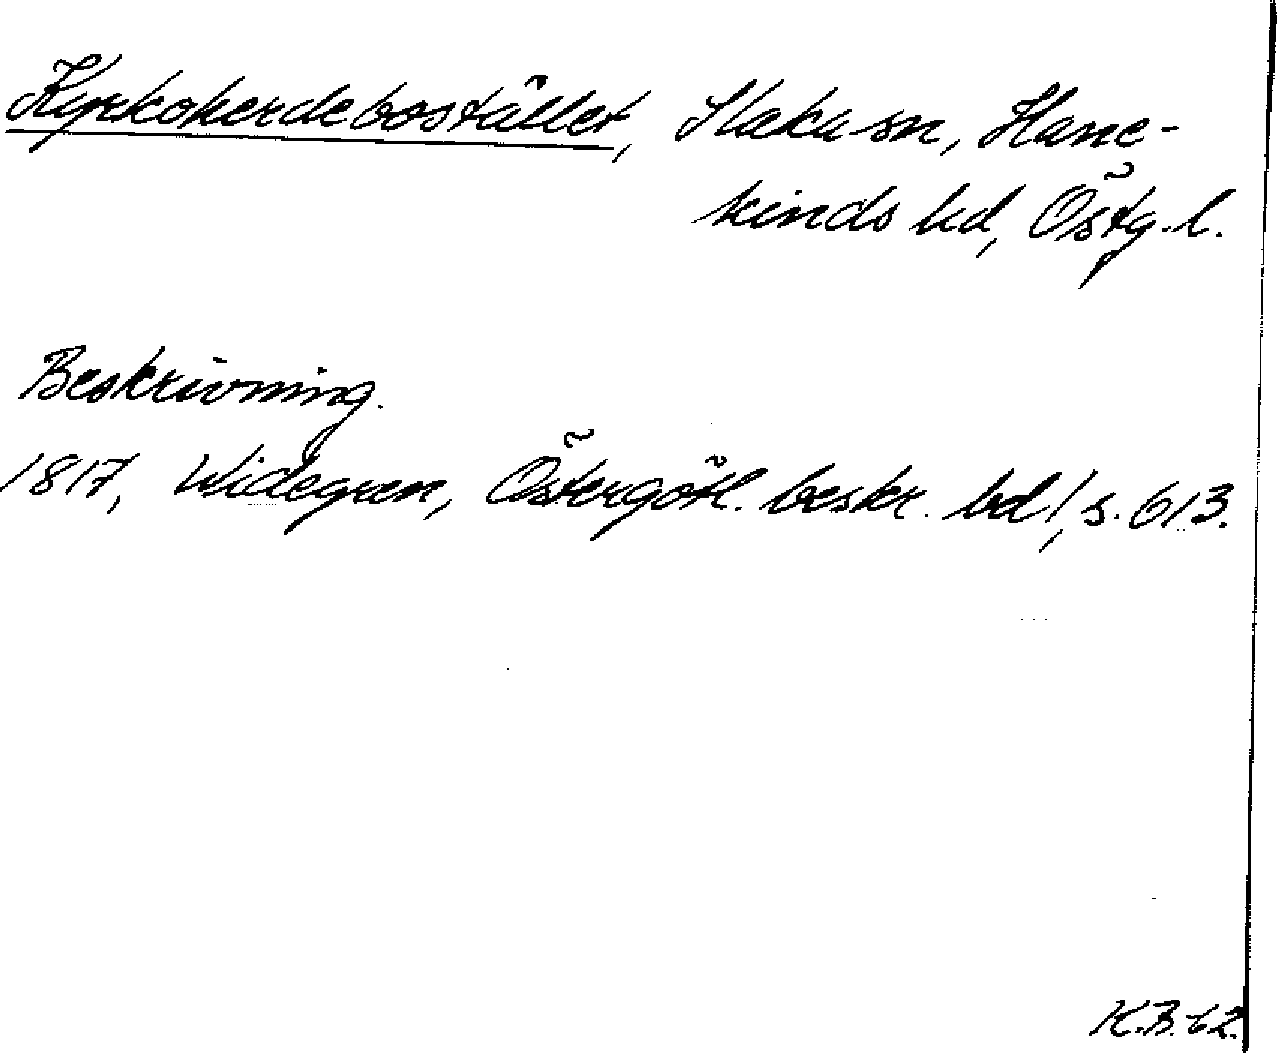 Kyrkoherdebostället, Slaka sn, Hane-
kinds hd, Östg.l.
Beskrivning.
1817, Widegren, Östergötl. beskr. bd 1, s. 613.
K.B. 62.